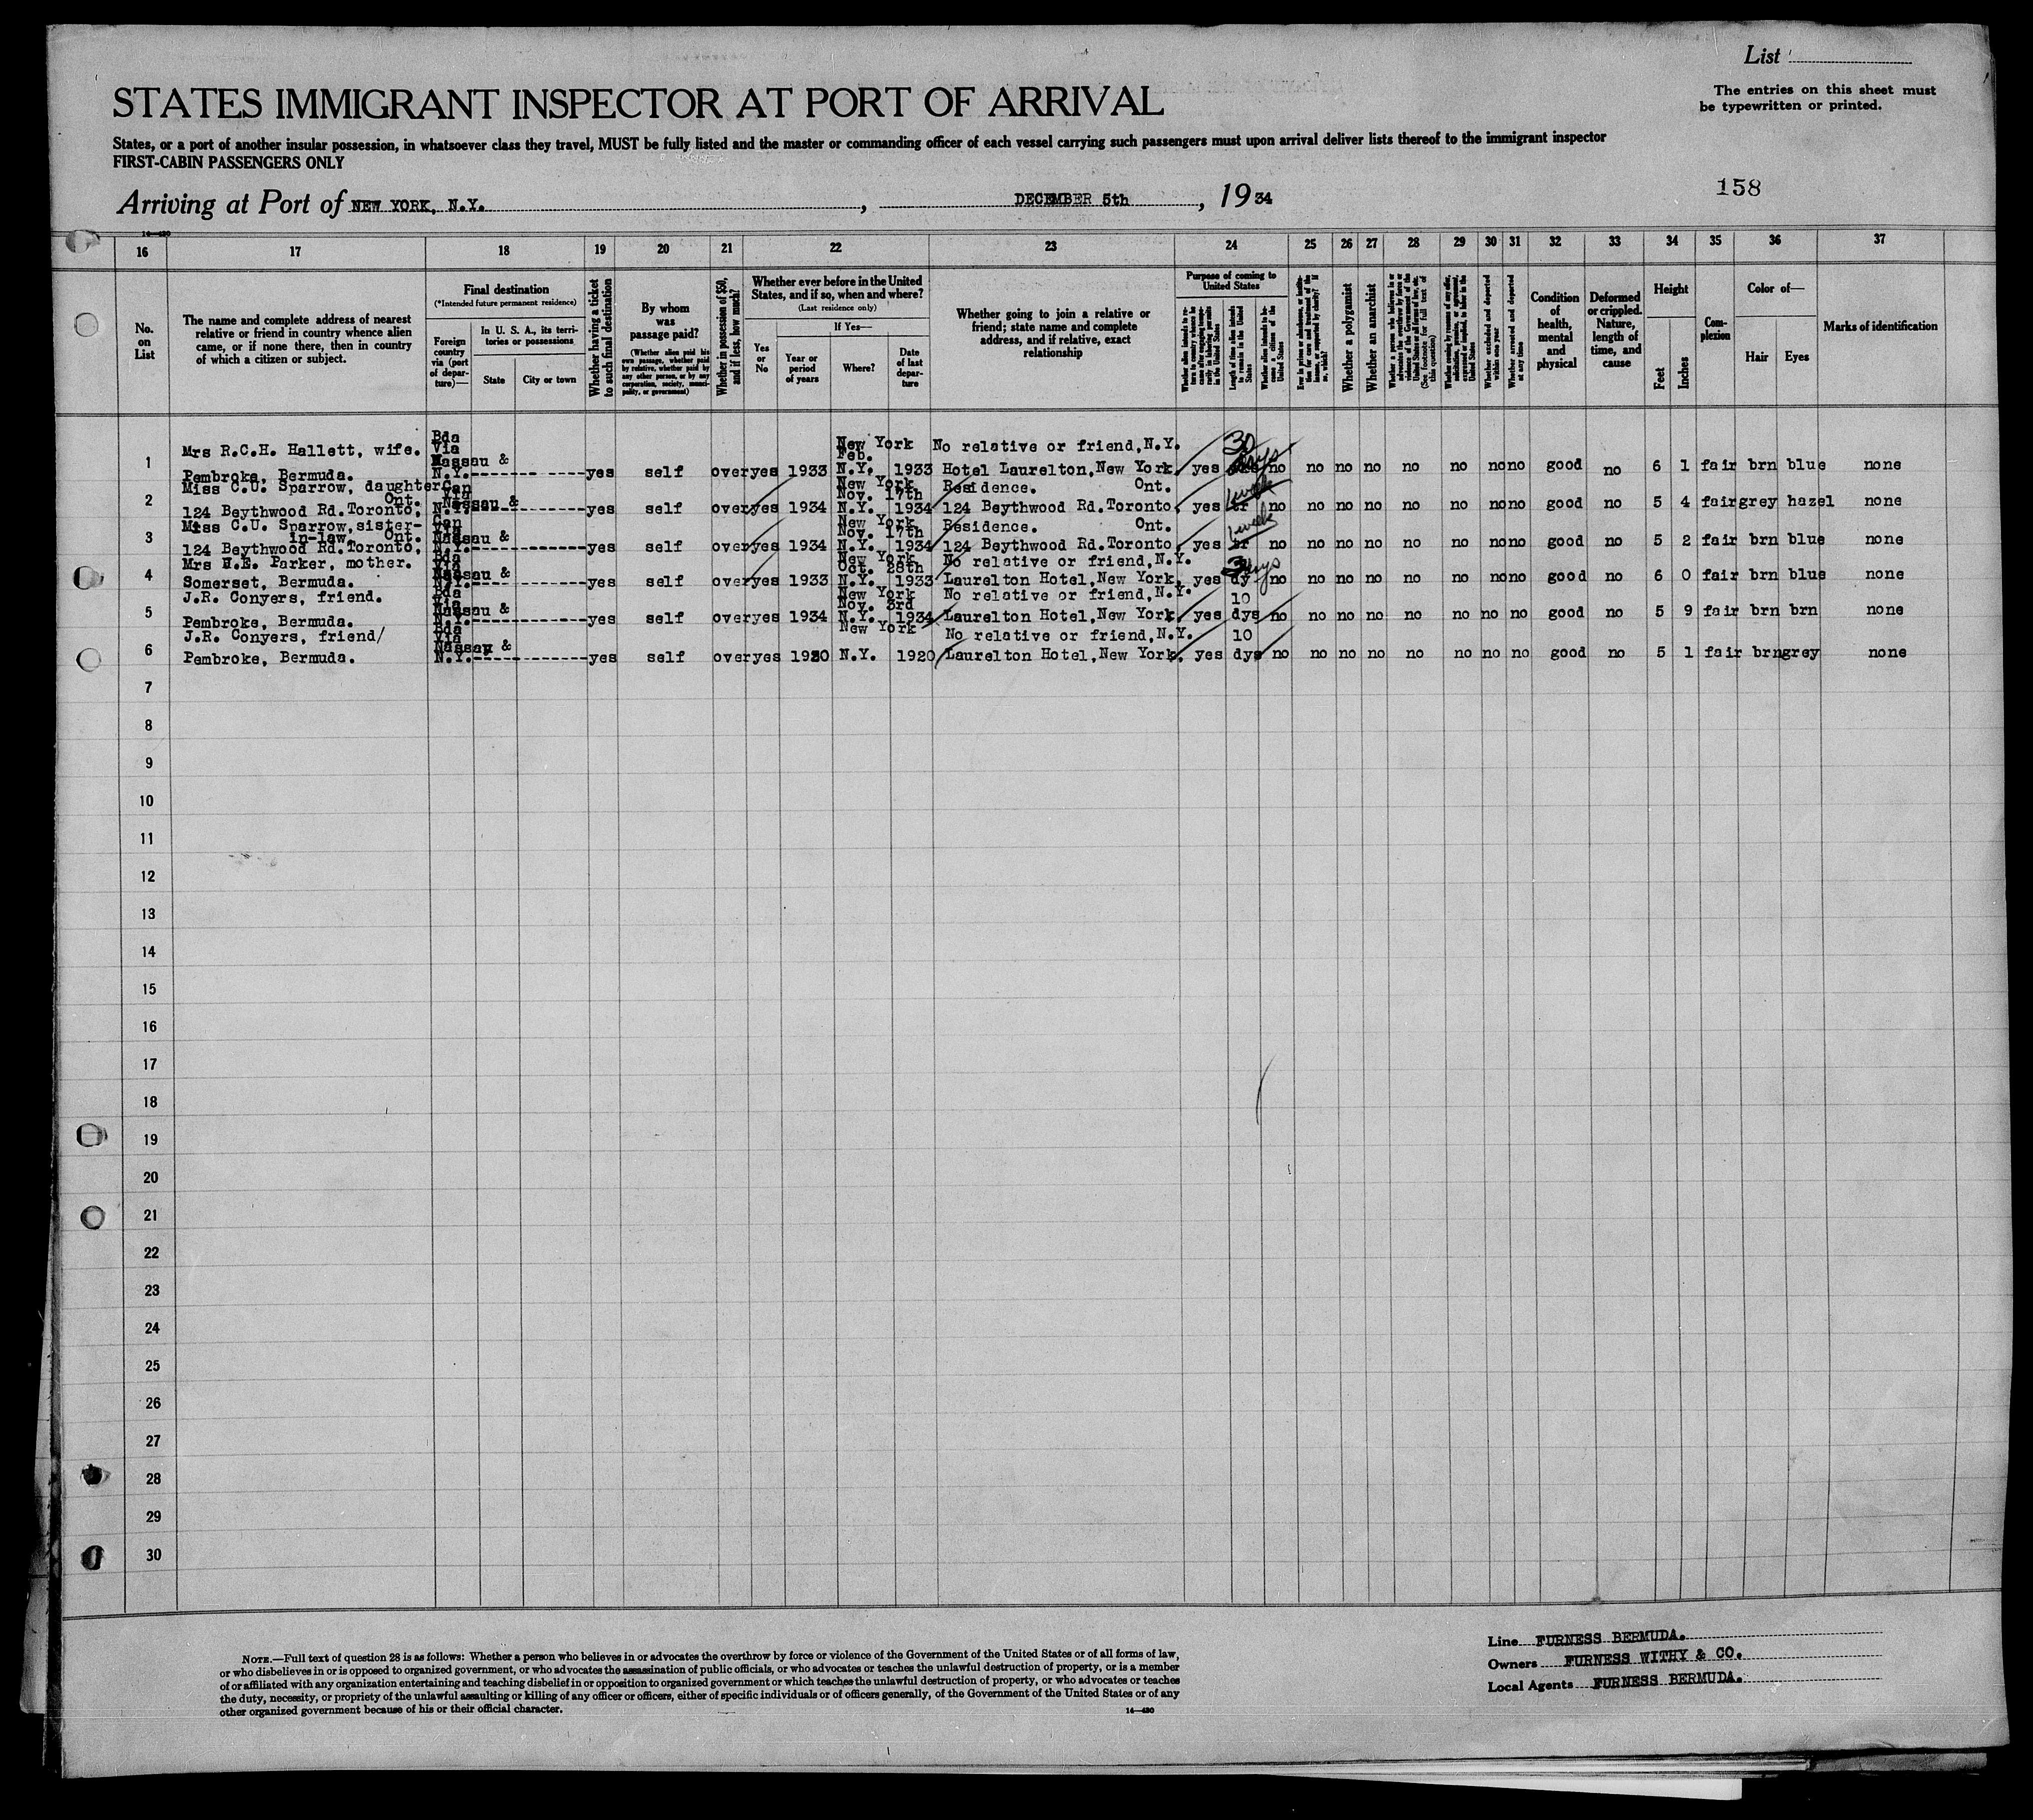 List
The entries on this sheet must
be typewritten or printed.
STATES IMMIGRANT INSPECTOR AT PORT OF ARRIVAL
States, or a port of another insular possession, in whatsoever class they travel, MUST be fully listed and the master or commanding officer of each vessel carrying such passengers must upon arrival deliver lists thereof to the immigrant inspector
FIRST-CABIN PASSENGERS ONLY
Arriving at Port of NEW YORK, N.Y., DECEMBER 5th, 19 34
158
14—430
16 17 18 19 20 21 22 23 24 25 26 27 28 29 30 31 32 33 34 35 36 37
No. on List
The name and complete address of nearest
relative or friend in country whence alien
came, or if none there, then in country
of which a citizen or subject.
Final destination
(*Intended future permanent residence)
Foreign country via (port of departure)—
In U. S. A., its territories or possessions
State
City or town
Whether having a ticket to such final destination
By whom was passage paid?
(Whether alien paid his own passage, whether paid by relative, whether paid by any other person, or by any corporation, society, municipality, or government)
Whether in possession of $50, and if less, how much?
Whether ever before in the United
States, and if so, when and where?
(Last residence only)
Yes or No
If Yes—
Year or period of years
Where?
Date of last departure
Whether going to join a relative or
friend; state name and complete
address, and if relative, exact
relationship
Purpose of coming to
United States
Length of time alien intends to remain in the United States
Whether a polygamist
Whether an anarchist
(See footnote for full text of this question)
Whether excluded and deported within one year
Whether arrested and deported at any time
Condition of health, mental and physical
Deformed or crippled. Nature, length of time, and cause
Height
Feet
Inches
Complexion
Color of—
Hair
Eyes
Marks of identification
1 Mrs R.C.H. Hallett, wife. Bda Via New York No relative or friend,N.Y. 30 days
Pembroke, Bermuda. Nassau & N.Y. yes self over yes 1933 N.Y. Feb. 1933 Hotel Laurelton,New York. yes no no no no no no no no good no 6 1 fair brn blue none
2 Miss C.U. Sparrow, daughter Can Via New York Residence. Ont. 1 week
124 Beythwood Rd.Toronto, Ont. Nassau & N.Y. yes self over yes 1934 N.Y. Nov. 17th 1934 124 Beythwood Rd.Toronto, yes no no no no no no no no good no 5 4 fair grey hazel none
3 Miss C.U. Sparrow,sister-in-law, Can Via New York Residence. Ont. 1 week
124 Beythwood Rd.Toronto, Ont. Nassau & N.Y. yes self over yes 1934 N.Y. Nov. 17th 1934 124 Beythwood Rd.Toronto, yes no no no no no no no no good no 5 2 fair brn blue none
4 Mrs W.E. Parker, mother. Bda Via New York No relative or friend,N.Y. days
Somerset, Bermuda. Nassau & N.Y. yes self over yes 1933 N.Y. Oct. 28th 1933 Laurelton Hotel,New York, yes dy no no no no no no no no good no 6 0 fair brn blue none
5 J.R. Conyers, friend. Bda Via New York No relative or friend,N.Y. 10
Pembroke, Bermuda. Nassau & N.Y. yes self over yes 1934 N.Y. Nov. 3rd 1934 Laurelton Hotel,New York, yes dys no no no no no no no no good no 5 9 fair brn brn none
6 J.R. Conyers, friend/ Bda Via New York No relative or friend,N.Y. 10
Pembroke, Bermuda. Nassau & N.Y. yes self over yes 1920 N.Y. 1920 Laurelton Hotel,New York, yes dys no no no no no no no no good no 5 1 fair brn grey none
7
8
9
10
11
12
13
14
15
16
17
18
19
20
21
22
23
24
25
26
27
28
29
30
NOTE.—Full text of question 28 is as follows: Whether a person who believes in or advocates the overthrow by force or violence of the Government of the United States or of all forms of law,
or who disbelieves in or is opposed to organized government, or who advocates the assassination of public officials, or who advocates or teaches the unlawful destruction of property, or is a member
of or affiliated with any organization entertaining and teaching disbelief in or opposition to organized government or which teaches the unlawful destruction of property, or who advocates or teaches
the duty, necessity, or propriety of the unlawful assaulting or killing of any officer or officers, either of specific individuals or of officers generally, of the Government of the United States or of any
other organized government because of his or their official character.
14—430
Line FURNESS BERMUDA.
Owners FURNESS WITHY & CO.
Local Agents FURNESS BERMUDA.